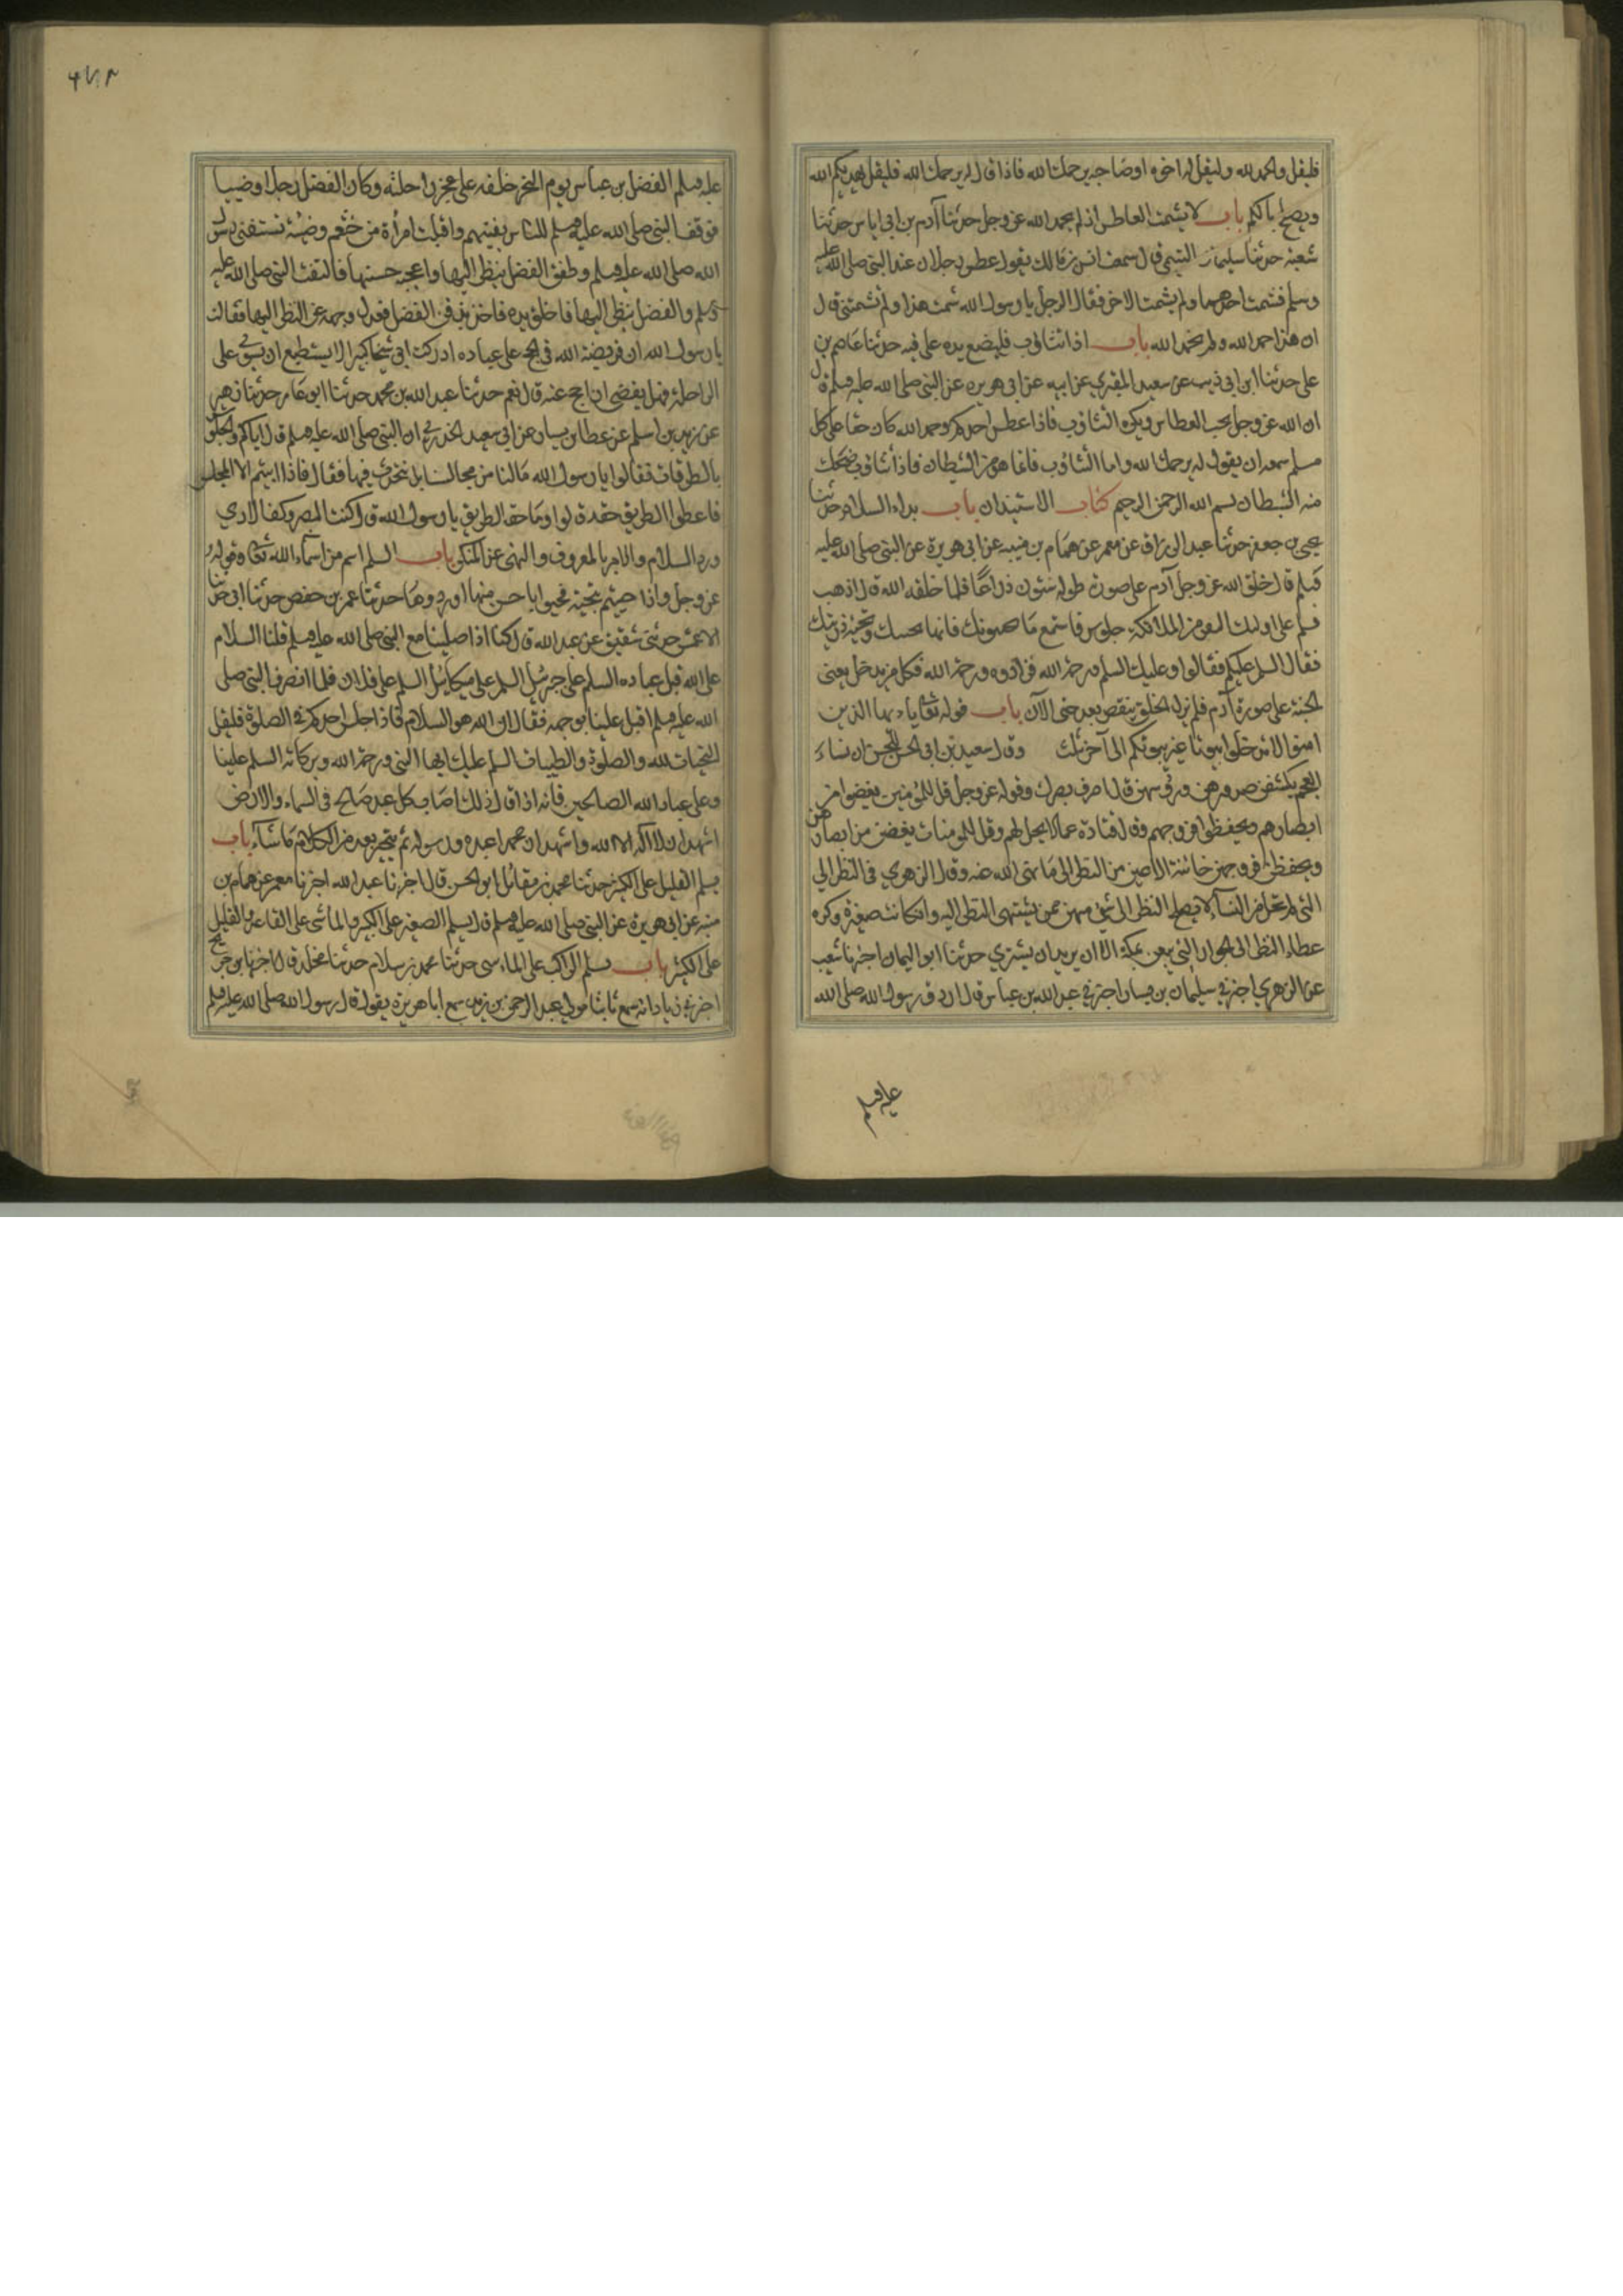 فليقل والحمد لله وليقل له اخوه او صاحبه يرحمك الله فاذا قال له يرحمك الله فليقل يهديكم الله
ويصلح بالكم باب لا يشمت العاطس اذا لم يحمد الله عز وجل حدثنا آدم بن ابي اياس حدثنا
شعبة حدثنا سليمان التيمي قال سمعت انس بن مالك يقول عطس رجلان عند النبي صلى الله عليه
وسلم فشمت احدهما ولم يشمت الاخر فقال الرجل يا رسول الله شمت هذا ولم تشمتني قال
ان هذا حمد الله ولم تحمد الله باب اذا تثاوب فليضع يده على فيه حدثنا عاصم بن
علي حدثنا ابن ابي ذيب عن سعيد المقبري عن ابيه عن ابي هريره عن النبي صلى الله عليه وسلم قال
ان الله عز وجل يحب العطاس ويكره التثاوب فاذا عطس احدكم وحمد الله كان حقا على كل
مسلم سمعه ان يقول له يرحمك الله واما التثاوب فانما هو من الشيطان فاذا تثاوب ضحك
منه الشيطان بسم الله الرحمن الرحيم كتاب الاستيذان باب بداء السلام حدثنا
يحيى بن جعفر حدثنا عبد الرزاق عن معمر عن همام بن منبه عن ابي هريرة عن النبي صلى الله عليه
وسلم قال خلق الله عز وجل آدم على صورته طوله ستون ذراعا فلما خلقه الله قال اذهب
فسلم على اوليك النفر من الملائكة جلوس فاستمع ما يحيونك فانها تحيتك وتحية ذريتك
فقال السلم عليكم فقالوا وعليك السلم ورحمة الله فزادوه ورحمة الله فكل من يدخل يعني
الجنة على صورة آدم فلم يزل الخلق ينقص بعد حتى الآن باب قوله تعالى يا ايها الذين
امنوا لا تدخلوا بيوتا غير بيوتكم الى آخر وقال سعيد بن ابي الحسن للحسن ان نساء
العجم يكشفن صدورهن ورؤسهن قال اصرف بصرك وقوله عز وجل قل للمؤمنين يغضوا من
ابصارهم ويحفظوا فروجهم وقال قتادة عما لا يحل لهم وقل للمومنات يغضضن من ابصارهن
ويحفظن فروجهن خائنة الاعين من النظر الى ما نهى الله عنه وقال الزهري في النظر الى
التي لم تحض من النساء لا يصلح النظر الى شئ منهن ممن يشتهى النظر اليه وان كانت صغيرة وكره
عطاء النظر الى الجوار التي يبعن بمكة الا ان يريد ان يشتري حدثنا ابو اليمان اخبرنا شعيب
عن الزهري اخبرني سليمان بن يسار اخبرني عبد الله بن عباس قال اردف رسول الله صلى الله
عليه وسلم
عليه وسلم الفضل بن عباس يوم النحر خلفه على عجز راحلته وكان الفضل رجلا وضييا
فوقف النبي صلى الله عليه وسلم للناس يفتيهم واقبلت امرأة من خثعم وضئة تستفتي رسول
الله صلى الله عليه وسلم وطفق الفضل ينظر اليها واعجبه حسنها فالتفت النبي صلى الله عليه
وسلم والفضل ينظر اليها فاخلف بيده فاخذ بذقن الفضل فعدل وجهه عن النظر اليها فقالت
يا رسول الله ان فريضة الله في الحج على عباده ادركت ابي شيخا كبيرا لا يستطيع ان يستوي على
الراحلة فهل يقضي ان احج عنه قال نعم حدثنا عبد الله بن محمد حدثنا ابو عامر حدثنا زهير
عن زيد بن اسلم عن عطا بن يسار عن ابي سعيد الخدري ان النبي صلى الله عليه وسلم قال اياكم والجلوس
بالطرقات فقالوا يا رسول الله ما لنا من مجالسنا بد نتحدث فيها فقال فاذا ابيتم الا المجلس
فاعطوا الطريق حقه قالوا وما حق الطريق يا رسول الله قال غض البصر وكف الاذى
ورد السلام والامر بالمعروف والنهي عن المنكر باب السلم اسم من اسماء الله تعالى وقوله
عز وجل واذا حييتم بتحية فحيوا باحسن منها او ردوها حدثنا عمر بن حفص حدثنا ابي حدثنا
الاعمش حدثني شقيق عن عبد الله قال كنا اذا صلينا مع النبي صلى الله عليه وسلم قلنا السلام
على الله قبل عباده السلم على جبرئيل السلم على ميكائيل السلم على فلان فلما انصرف النبي صلى
الله عليه وسلم اقبل علينا بوجهه فقال ان الله هو السلام فاذا جلس احدكم في الصلوة فليقل
التحيات لله والصلوة والطيبات السلم عليك ايها النبي ورحمة الله وبركاته السلم علينا
وعلى عباد الله الصالحين فانه اذا قال ذلك اصاب كل عبد صالح في السماء والارض
اشهد ان لا اله الا الله واشهد ان محمدا عبده ورسوله ثم يتخير بعد من الكلام ما شاء باب
يسلم القليل على الكثير حدثنا محمد بن مقاتل ابو الحسن قال اخبرنا عبد الله اخبرنا معمر عن همام بن
منبه عن ابي هريرة عن النبي صلى الله عليه وسلم قال يسلم الصغير على الكبير والماشي على القاعد والقليل
على الكثير باب يسلم الراكب على الماشي حدثنا محمد بن سلام حدثنا مخلد قال اخبرنا ابن جريج
اخبرني زياد انه سمع ثابتا مولى عبد الرحمن بن زيد سمع ابا هريرة يقول قال رسول الله صلى الله عليه وسلم